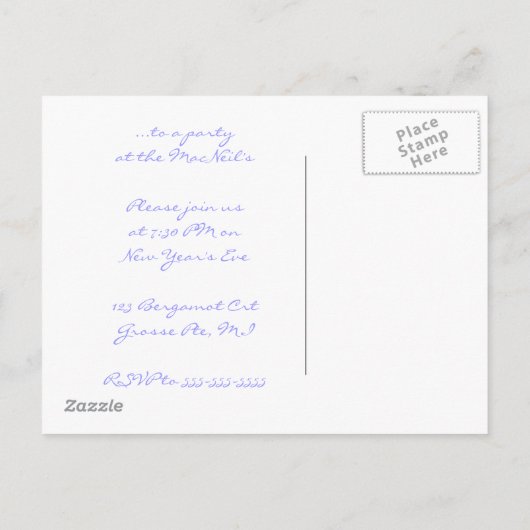 ...to a party
at the MacNeil's
Please join us
at 7:30 PM on
New Year's Eve
123 Bergamot Crt
Grosse Pte, MI
RSVP to 555-555-5555
Zazzle
Place
Stamp
Here